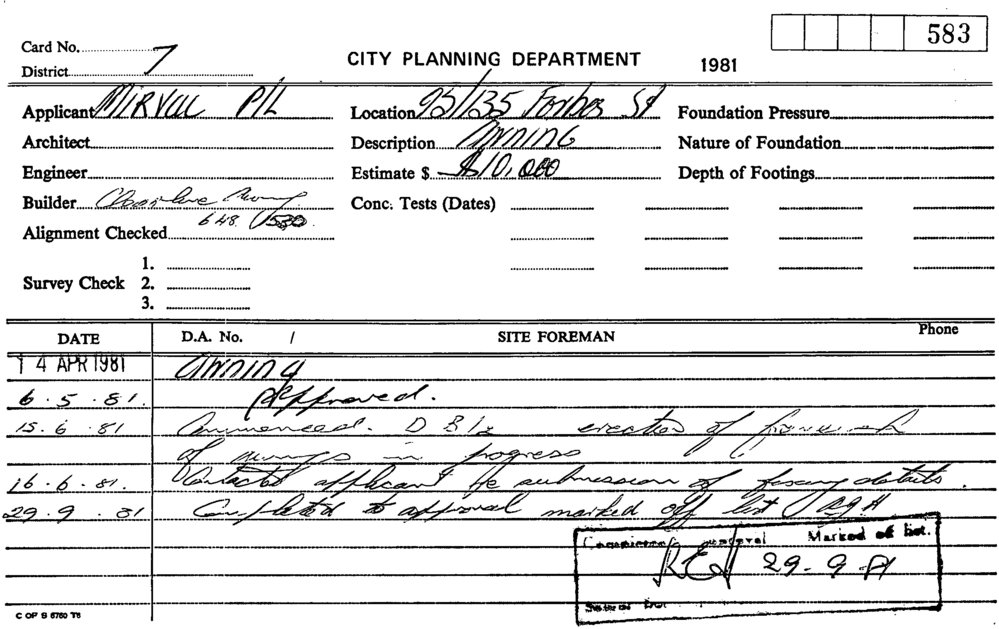 583
Card No.
District 7
CITY PLANNING DEPARTMENT 1981
Applicant MIRVAC P/L
Location 95/135 Forbes St
Foundation Pressure
Architect
Description AWNING
Nature of Foundation
Engineer
Estimate $ $10,000
Depth of Footings
Builder
Conc. Tests (Dates)
648. 530
Alignment Checked
1.
Survey Check 2.
3.
DATE D.A. No. / SITE FOREMAN Phone
14 APR 1981 Awning
6.5.81. Approved.
15.6.81 Commenced. erection of framework
of awnings in progress
16.6.81. Contacted applicant re submission of fixing details.
29.9.81 Completed to approval marked off list
Completed approval Marked off list.
29-9-81
C OF S 6760 T5